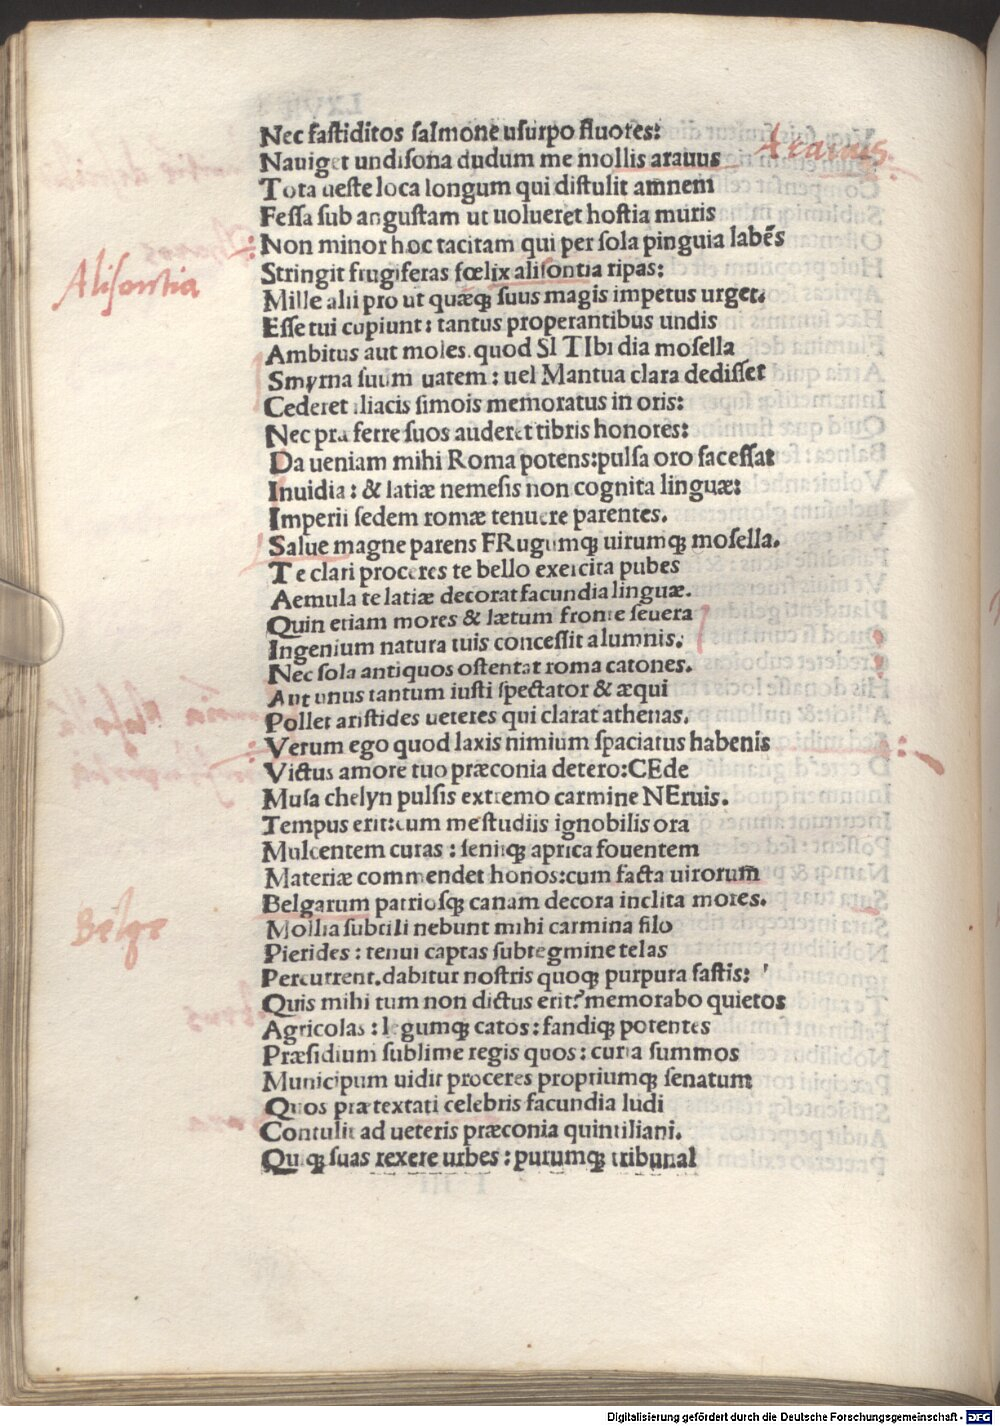 Nec fastiditos salmone usurpo fluores:
Araruis.
Nauiget undisona dudum me mollis arauus
Tota ueste loca longum qui distulit amnem
Fessa sub angustam ut uolueret hostia muris
Non minor hoc tacitam qui per sola pinguia labēs
Alisontia
Stringit frugiferas fœlix alisontia ripas:
Mille alii pro ut quæqꝫ suus magis impetus urget.
Esse tui cupiunt: tantus properantibus undis
Ambitus aut moles. quod SI TIbi dia mosella
Smyrna suum uatem: uel Mantua clara dedisset
Cederet iliacis simois memoratus in oris:
Nec pra ferre suos auderet tibris honores:
Da ueniam mihi Roma potens: pulsa oro facessat
Inuidia: & latiæ nemesis non cognita linguæ:
Imperii sedem romæ tenuere parentes.
Salue magne parens FRugumqꝫ uirumqꝫ mosella.
Te clari proceres te bello exercita pubes
Aemula te latiæ decorat facundia linguæ.
Quin etiam mores & lætum fronte seuera
Ingenium natura tuis concessit alumnis.
Nec sola antiquos ostentat roma catones.
Aut unus tantum iusti spectator & æqui
Pollet aristides ueteres qui clarat athenas.
Verum ego quod laxis nimium spaciatus habenis
Victus amore tuo præconia detero: CEde
Musa chelyn pulsis extremo carmine NEruis.
Tempus erit: cum me studiis ignobilis ora
Mulcentem curas: seniiqꝫ aprica fouentem
Materiæ commendet honos: cum facta uirorum̄
Belge
Belgarum patriosqꝫ canam decora inclita mores.
Mollia subtili nebunt mihi carmina filo
Pierides: tenui captas subtegmine telas
Percurrent. dabitur nostris quoqꝫ purpura fastis:
Quis mihi tum non dictus erit? memorabo quietos
Agricolas: legumqꝫ catos: fandiqꝫ potentes
Præsidium sublime regis quos: curia summos
Municipum uidit proceres propriumqꝫ senatum
Quos prætextati celebris facundia ludi
Contulit ad ueteris præconia quintiliani.
Quiqꝫ suas rexere urbes: purumqꝫ tribunal
Digitalisierung gefördert durch die Deutsche Forschungsgemeinschaft - DFG